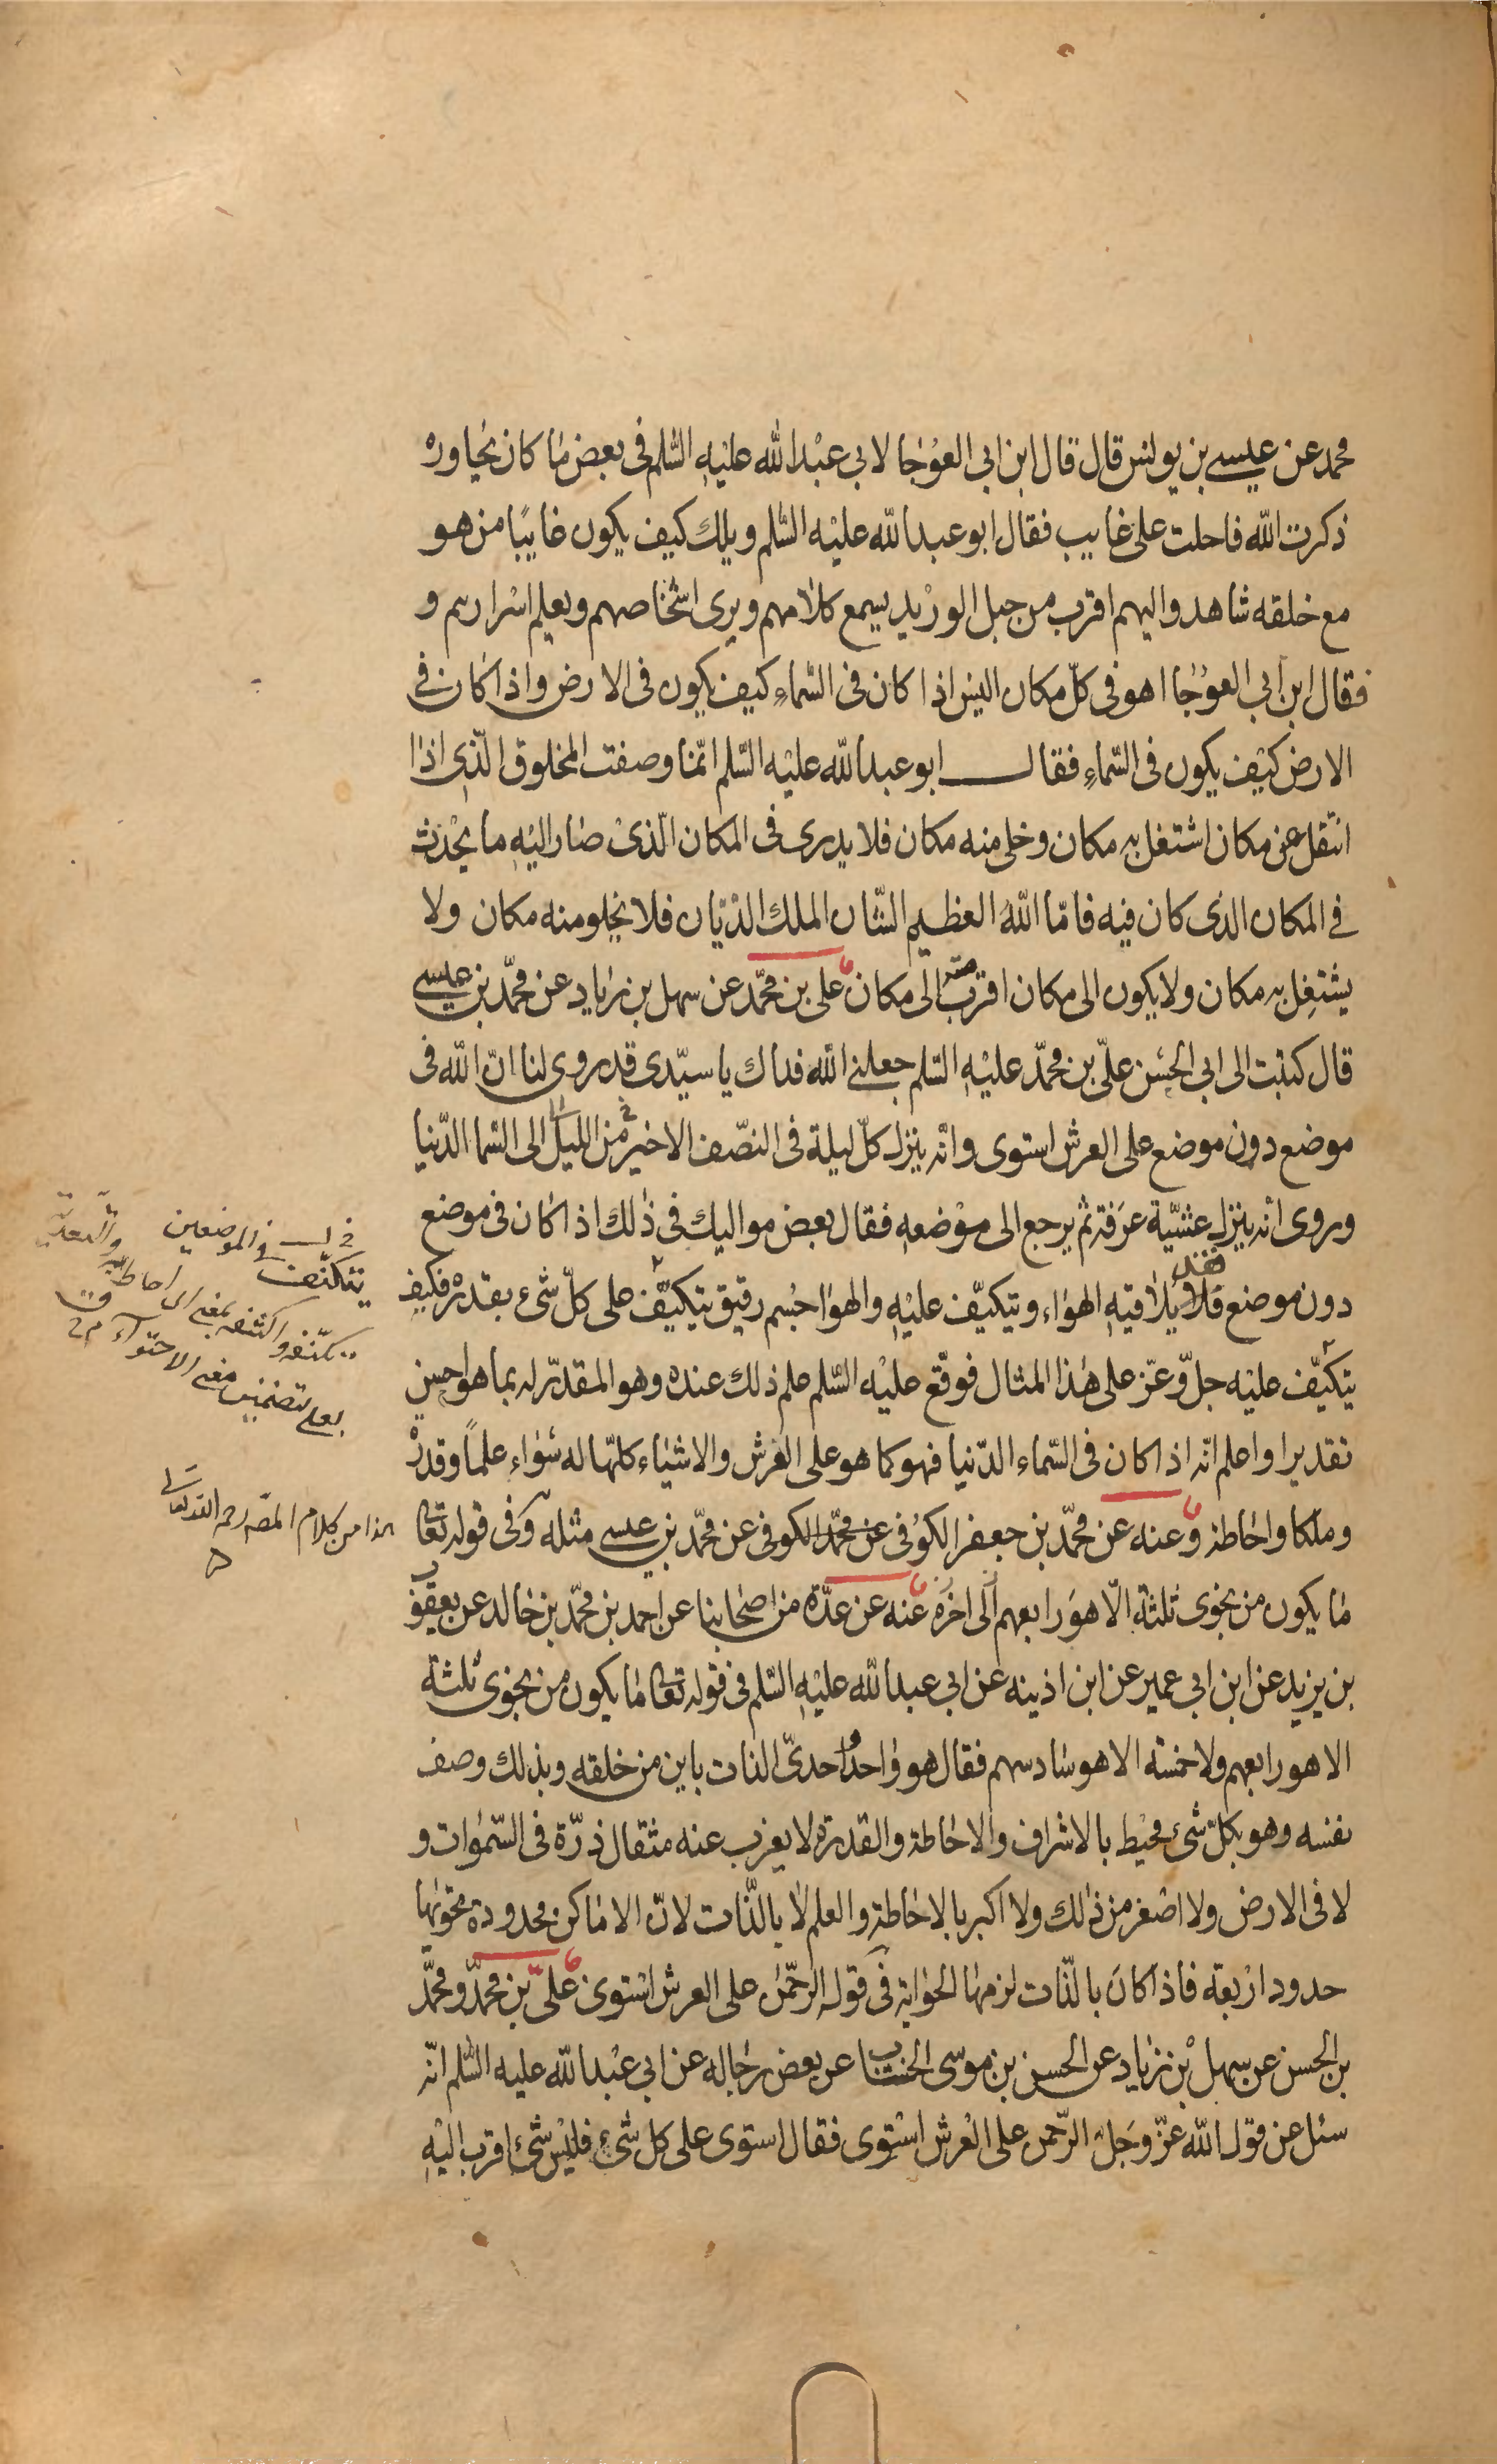 محمد عن عيسى بن يونس قال قال ابن ابى العوجا لابى عبد الله عليه السلم فى بعض ما كان يحاوره
ذكرت الله فاحلت على غايب فقال ابو عبد الله عليه السلم ويلك كيف يكون غايبا من هو
مع خلقه شاهد واليهم اقرب من حبل الوريد يسمع كلامهم ويرى اشخاصهم ويعلم اسرارهم و
فقال ابن ابى العوجا اهو فى كل مكان اليس اذا كان فى السماء كيف يكون فى الارض واذا كان فى
الارض كيف يكون فى السماء فقال ابو عبد الله عليه السلم انما وصفت المخلوق الذى اذا
انتقل عن مكان اشتغل به مكان وخلى منه مكان فلا يدرى فى المكان الذى صار اليه ما يحدث
فى المكان الذى كان فيه فاما الله العظيم الشان الملك الديان فلا يخلو منه مكان ولا
يشتغل به مكان ولا يكون الى مكان اقرب منه الى مكان على بن محمد عن سهل بن زياد عن محمد بن عيسى
قال كتبت الى ابى الحسن على بن محمد عليه السلم جعلنى الله فداك يا سيدى قد روى لنا ان الله فى
موضع دون موضع على العرش استوى وانه ينزل كل ليلة فى النصف الاخير من الليل الى السما الدنيا
وروى انه ينزل عشية عرفة ثم يرجع الى موضعه فقال بعض مواليك فى ذلك اذا كان فى موضع
دون موضع فقد يلاقيه الهواء ويتكيف عليه والهوا جسم رقيق يتكيف على كل شىء بقدره فكيف
يتكيف عليه جل وعز على هذا المثال فوقع عليه السلم علم ذلك عنده وهو المقدر له بما هو احسن
تقديرا واعلم انه اذا كان فى السماء الدنيا فهو كما هو على العرش والاشياء كلها له سواء علما وقدرة
وملكا واحاطة وعنه عن محمد بن جعفر الكوفى عن محمد الكوفى عن محمد بن عيسى مثله وفى قوله تعا
ما يكون من نجوى ثلثة الا هو رابعهم الى اخره عنه عن عدة من اصحابنا عن احمد بن محمد بن خالد عن يعقوب
بن يزيد عن ابن ابى عمير عن ابن اذينه عن ابى عبد الله عليه السلم فى قوله تعا ما يكون من نجوى ثلثة
الا هو رابعهم ولا خمسة الا هو سادسهم فقال هو واحد احدى الذات باين من خلقه وبذلك وصف
نفسه وهو بكل شىء محيط بالاشراف والاحاطة والقدرة لا يعزب عنه مثقال ذرة فى السموات و
لا فى الارض ولا اصغر من ذلك ولا اكبر بالاحاطة والعلم لا بالذات لان الاماكن محدودة تحويها
حدود اربعة فاذا كان بالذات لزمها الحواية فى قوله الرحمن على العرش استوى على بن محمد ومحمد
بن الحسن عن سهل بن زياد عن الحسن بن موسى الخشاب عن بعض رجاله عن ابى عبد الله عليه السلم انه
سئل عن قول الله عز وجل الرحمن على العرش استوى فقال استوى على كل شىء فليس شىء اقرب اليه
يتكنف فى الموضعين
تكنفه واكتنفه بمعنى اى احاط به والتعدية
بعلى لتضمين معنى الاحتواء
هذا من كلام المص رحمه الله تعالى